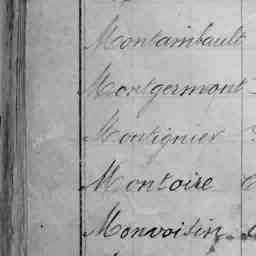 Montambault
Montgermont
Montignier
Montoire
Monvoisin